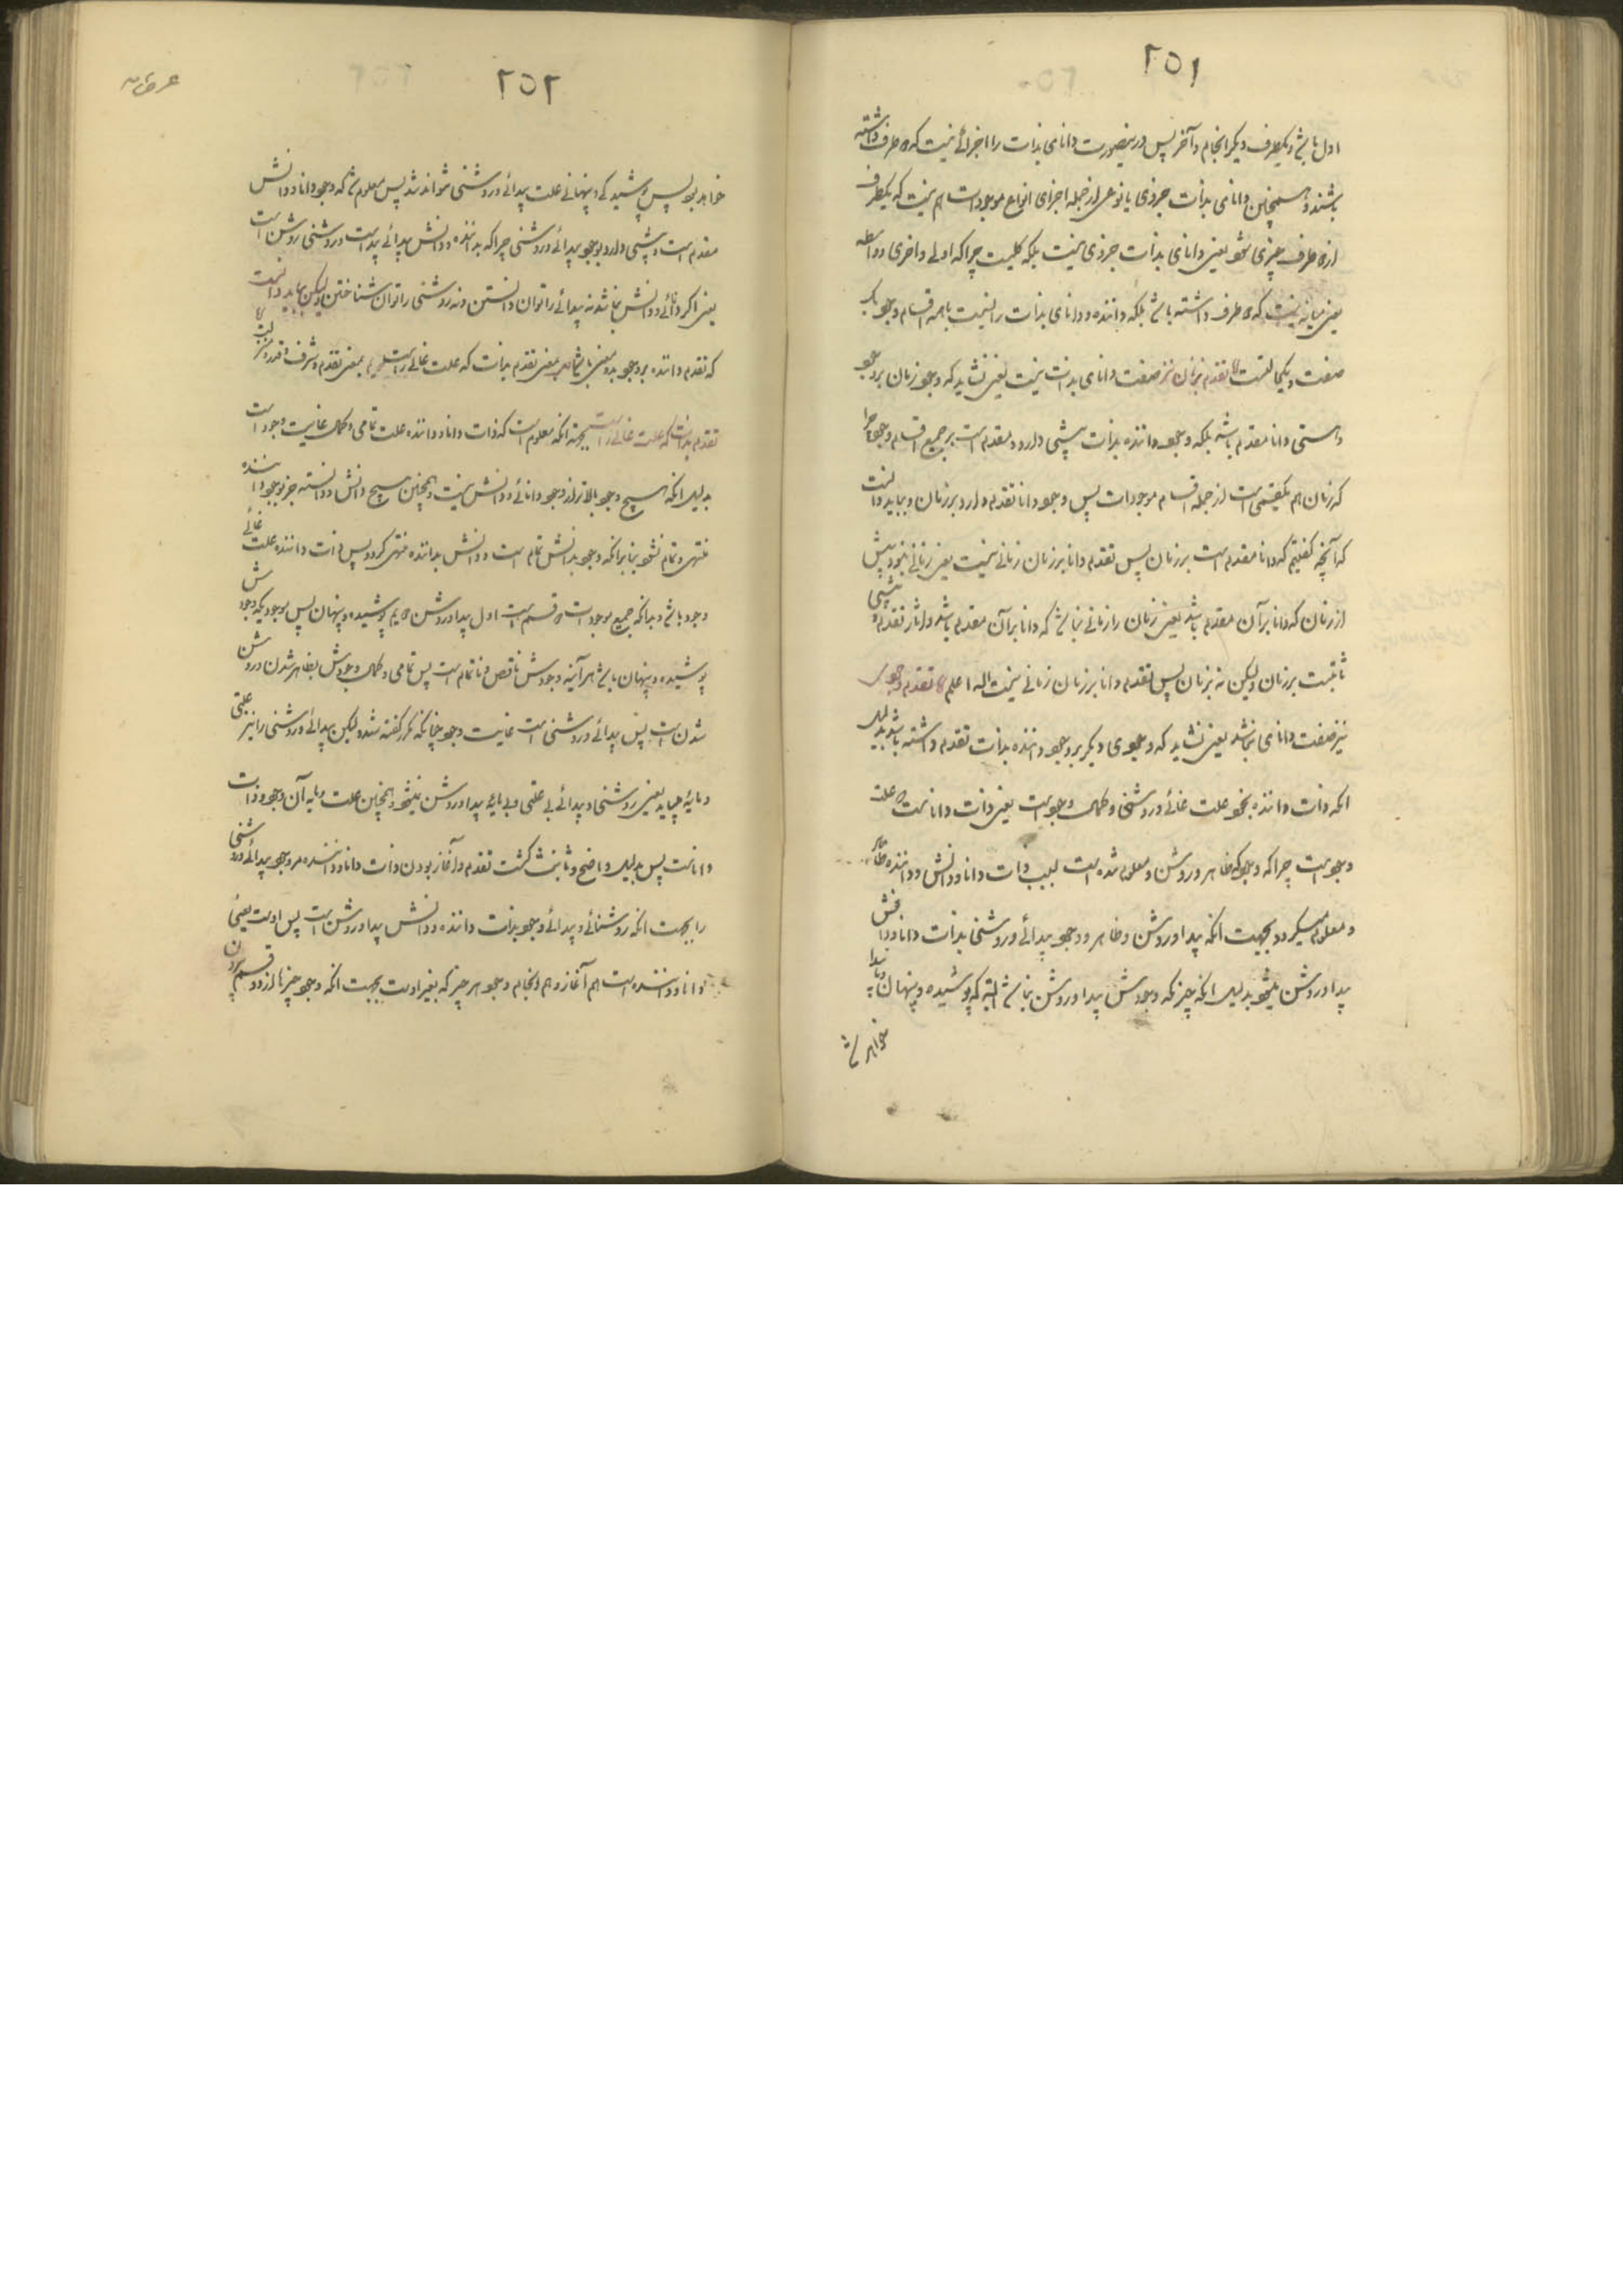 ۲۵۱
اول باشد و یکطرف دیگر انجام و آخر پس درینصورت دانای بذات را اجزائی نیست که دو طرف داشته
باشند و همچنین دانای بذات جزوی یا نوعی از جمله اجزای انواع موجودات هم نیست که یکطرف
از دو طرف چیزی شود یعنی دانای بذات جزوی نیست بلکه کلیست چراکه اولی و آخری و واسطه
یعنی میانه نیست که دو طرف داشته باشد بلکه داننده و دانای بذات را نسبت با همه اقسام وجود یک
صفت و یکحالتست تقدم بزمان نیز صفت دانای بذات نیست یعنی نشاید که وجود زمان بر وجود
و هستی دانا مقدم باشد بلکه وجود داننده بذات پیشی دارد و مقدم است بر جمیع اقسام وجود چرا
که زمان هم یکقسمی است از جمله اقسام موجودات پس وجود دانا تقدم دارد بر زمان و بباید دانست
که آنچه گفتیم که دانا مقدم است بر زمان پس تقدم دانا بر زمان زمانی نیست یعنی زمانی نبود پیش
از زمان که دانا بر آن مقدم باشد یعنی زمان را زمانی نباشد که دانا بر آن مقدم باشد و آثار تقدم و پیشی
ثابتست بر زمان ولیکن نه بزمان پس تقدم دانا بر زمان زمانی نیست الله اعلم تقدم وجود
نیز صفت دانای نباشد یعنی نشاید که وجودی دیگر بر وجود داننده بذات تقدم داشته باشد بدلیل
انکه ذات داننده بخود علت غائی و روشنی و کمال وجود است یعنی ذات دانا تمامت علت
وجود است چراکه وجود که ظاهر و روشن و معلوم شده است بسبب ذات دانا و دانش و داننده ظاهر
و معلوم میگردد بجهت انکه پیدا و روشن و ظاهر و وجود پیدائی و روشنی بذات دانا و دانش
پیدا و روشن میشود بدلیل انکه چیزیکه وجودش پیدا و روشن نباشد البته که پوشیده و پنهان و ناپیدا
خواهد
۲۵۲
خواهد بود پس پوشیدگی و پنهانی علت پیدائی و روشنی نتواند شد پس معلوم شد که وجود دانا و دانش
مقدم است و پیشی دارد بوجود پیدائی و روشنی چراکه بداننده و دانش پیدائی پیداست و روشنی روشن است
یعنی اگر دانائی و دانش نباشد نه پیدائی را توان دانستن و نه روشنی را توان شناختن ولیکن بباید دانست
که تقدم داننده بر وجود بدو معنی باشد بمعنی تقدم بذات که علت غائی راست و بمعنی تقدم بشرف و قدر و مرتبت
تقدم بذات که علت غائی راست بجهت انکه معلوم است که ذات دانا و داننده علت تمامی و کمال غایت وجود است
بدلیل انکه هیچ وجود بالاتر از وجود دانائی و دانش نیست و همچنین هیچ دانش و دانسته جز بوجود داننده
منتهی و تمام نشود بنابرانکه وجود بدانش تمام است و دانش بداننده منتهی گردد پس ذات داننده علت غائی
وجود باشد و بدانکه جمیع موجودات دو قسم است اول پیدا و روشن دویم پوشیده و پنهان پس موجودیکه وجودش
پوشیده و پنهان باشد هر آینه وجودش ناقص و ناتمام است پس تمامی و کمال وجودش بظاهر شدن و روشن
شدن است پس پیدائی و روشنی است غایت وجود چنانکه مکرر گفته شد ولیکن پیدائی و روشنی را نیز علتی
و مایهٔ میباید یعنی روشنی و پیدائی بی علتی و بی مایهٔ پیدا و روشن نمیشود و همچنین علت و مایه آن وجود ذات
داناست پس بدلیل واضح و ثابت گشت تقدم و آغاز بودن ذات دانا و داننده مر وجود پیدائی و روشنی
را بجهت انکه روشنائی و پیدائی و وجود بذات داننده و دانش پیدا و روشن است پس اوست یعنی
دانا و داننده است هم آغاز و هم انجام وجود هر چیز که بغیر اوست بجهت انکه وجود چیزها از دو قسم بیرون